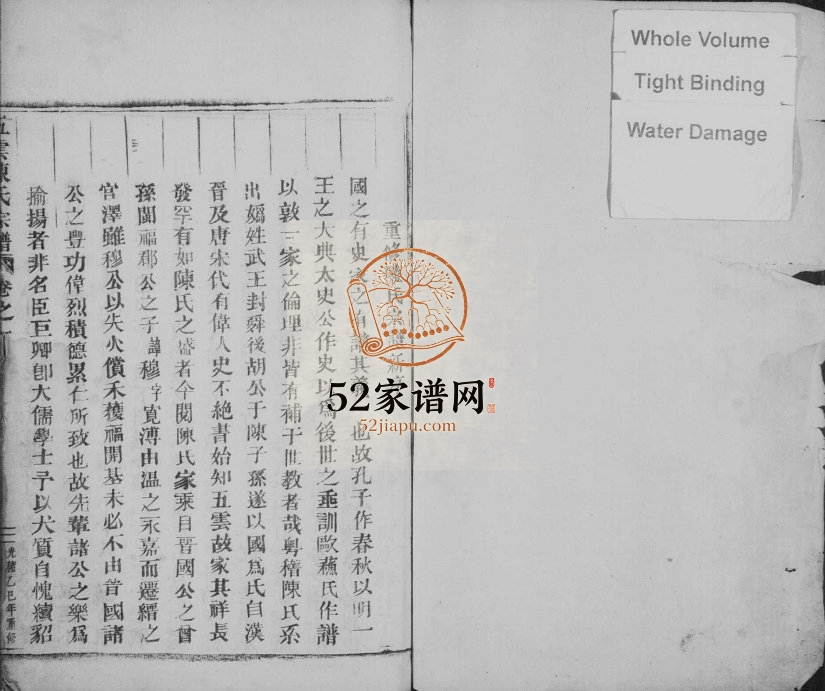 Whole Volume
Tight Binding
Water Damage
52家谱网
52jiapu.com
重修陳氏宗譜新序
國之有史家之有譜其義一也故孔子作春秋以明一
王之大典太史公作史以爲後世之垂訓歐蘇氏作譜
以敦一家之倫理非皆有補于世教者哉粤稽陳氏系
出嬀姓武王封舜後胡公于陳子孫遂以國爲氏自漢
晉及唐宋代有偉人史不絶書始知五雲故家其祥長
發罕有如陳氏之盛者今閲陳氏家乘自晋國公之曾
孫閩福郡公之子諱穆字寬溥由温之永嘉而遷縉之
官澤雖穆公以失火償禾獲福開基未必不由昔國諸
公之豊功偉烈積德累仁所致也故先輩諸公之樂爲
揄揚者非名臣巨卿卽大儒學士予以犬質自愧續貂
五雲陳氏宗譜 卷之一
光緒乙巳年重修